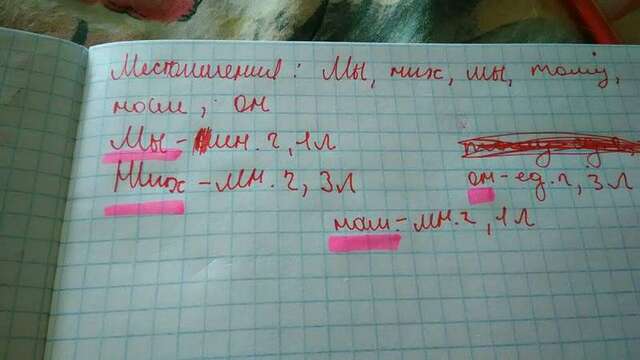 Местоимения: Мы, них, мы, тому,
нам, он
Мы - мн. ч, 1 л
Них - мн. ч, 3 л
он - ед. ч, 3 л
нам - мн. ч, 1 л